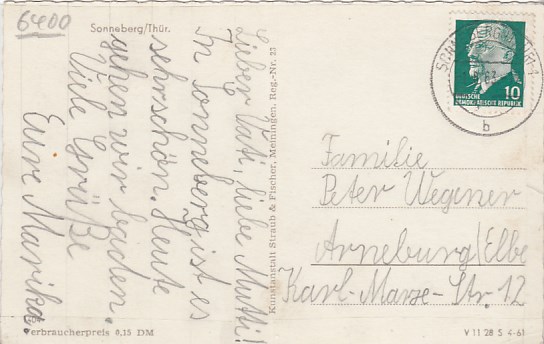 6400
Sonneberg/Thür.
Lieber Vati, liebe Mutti!
In Sonneberg ist es
sehr schön. Heute
gehen wir baden.
Viele Grüße
Eure Marika.
Kunstanstalt Straub & Fischer, Meiningen, Reg.-Nr. 33
DEUTSCHE
DEMOKRATISCHE REPUBLIK
10
b
Familie
Peter Wegener
Arneburg/Elbe
Karl-Marx-Str. 12
Verbraucherpreis 0,15 DM
V 11 28 S 4-61